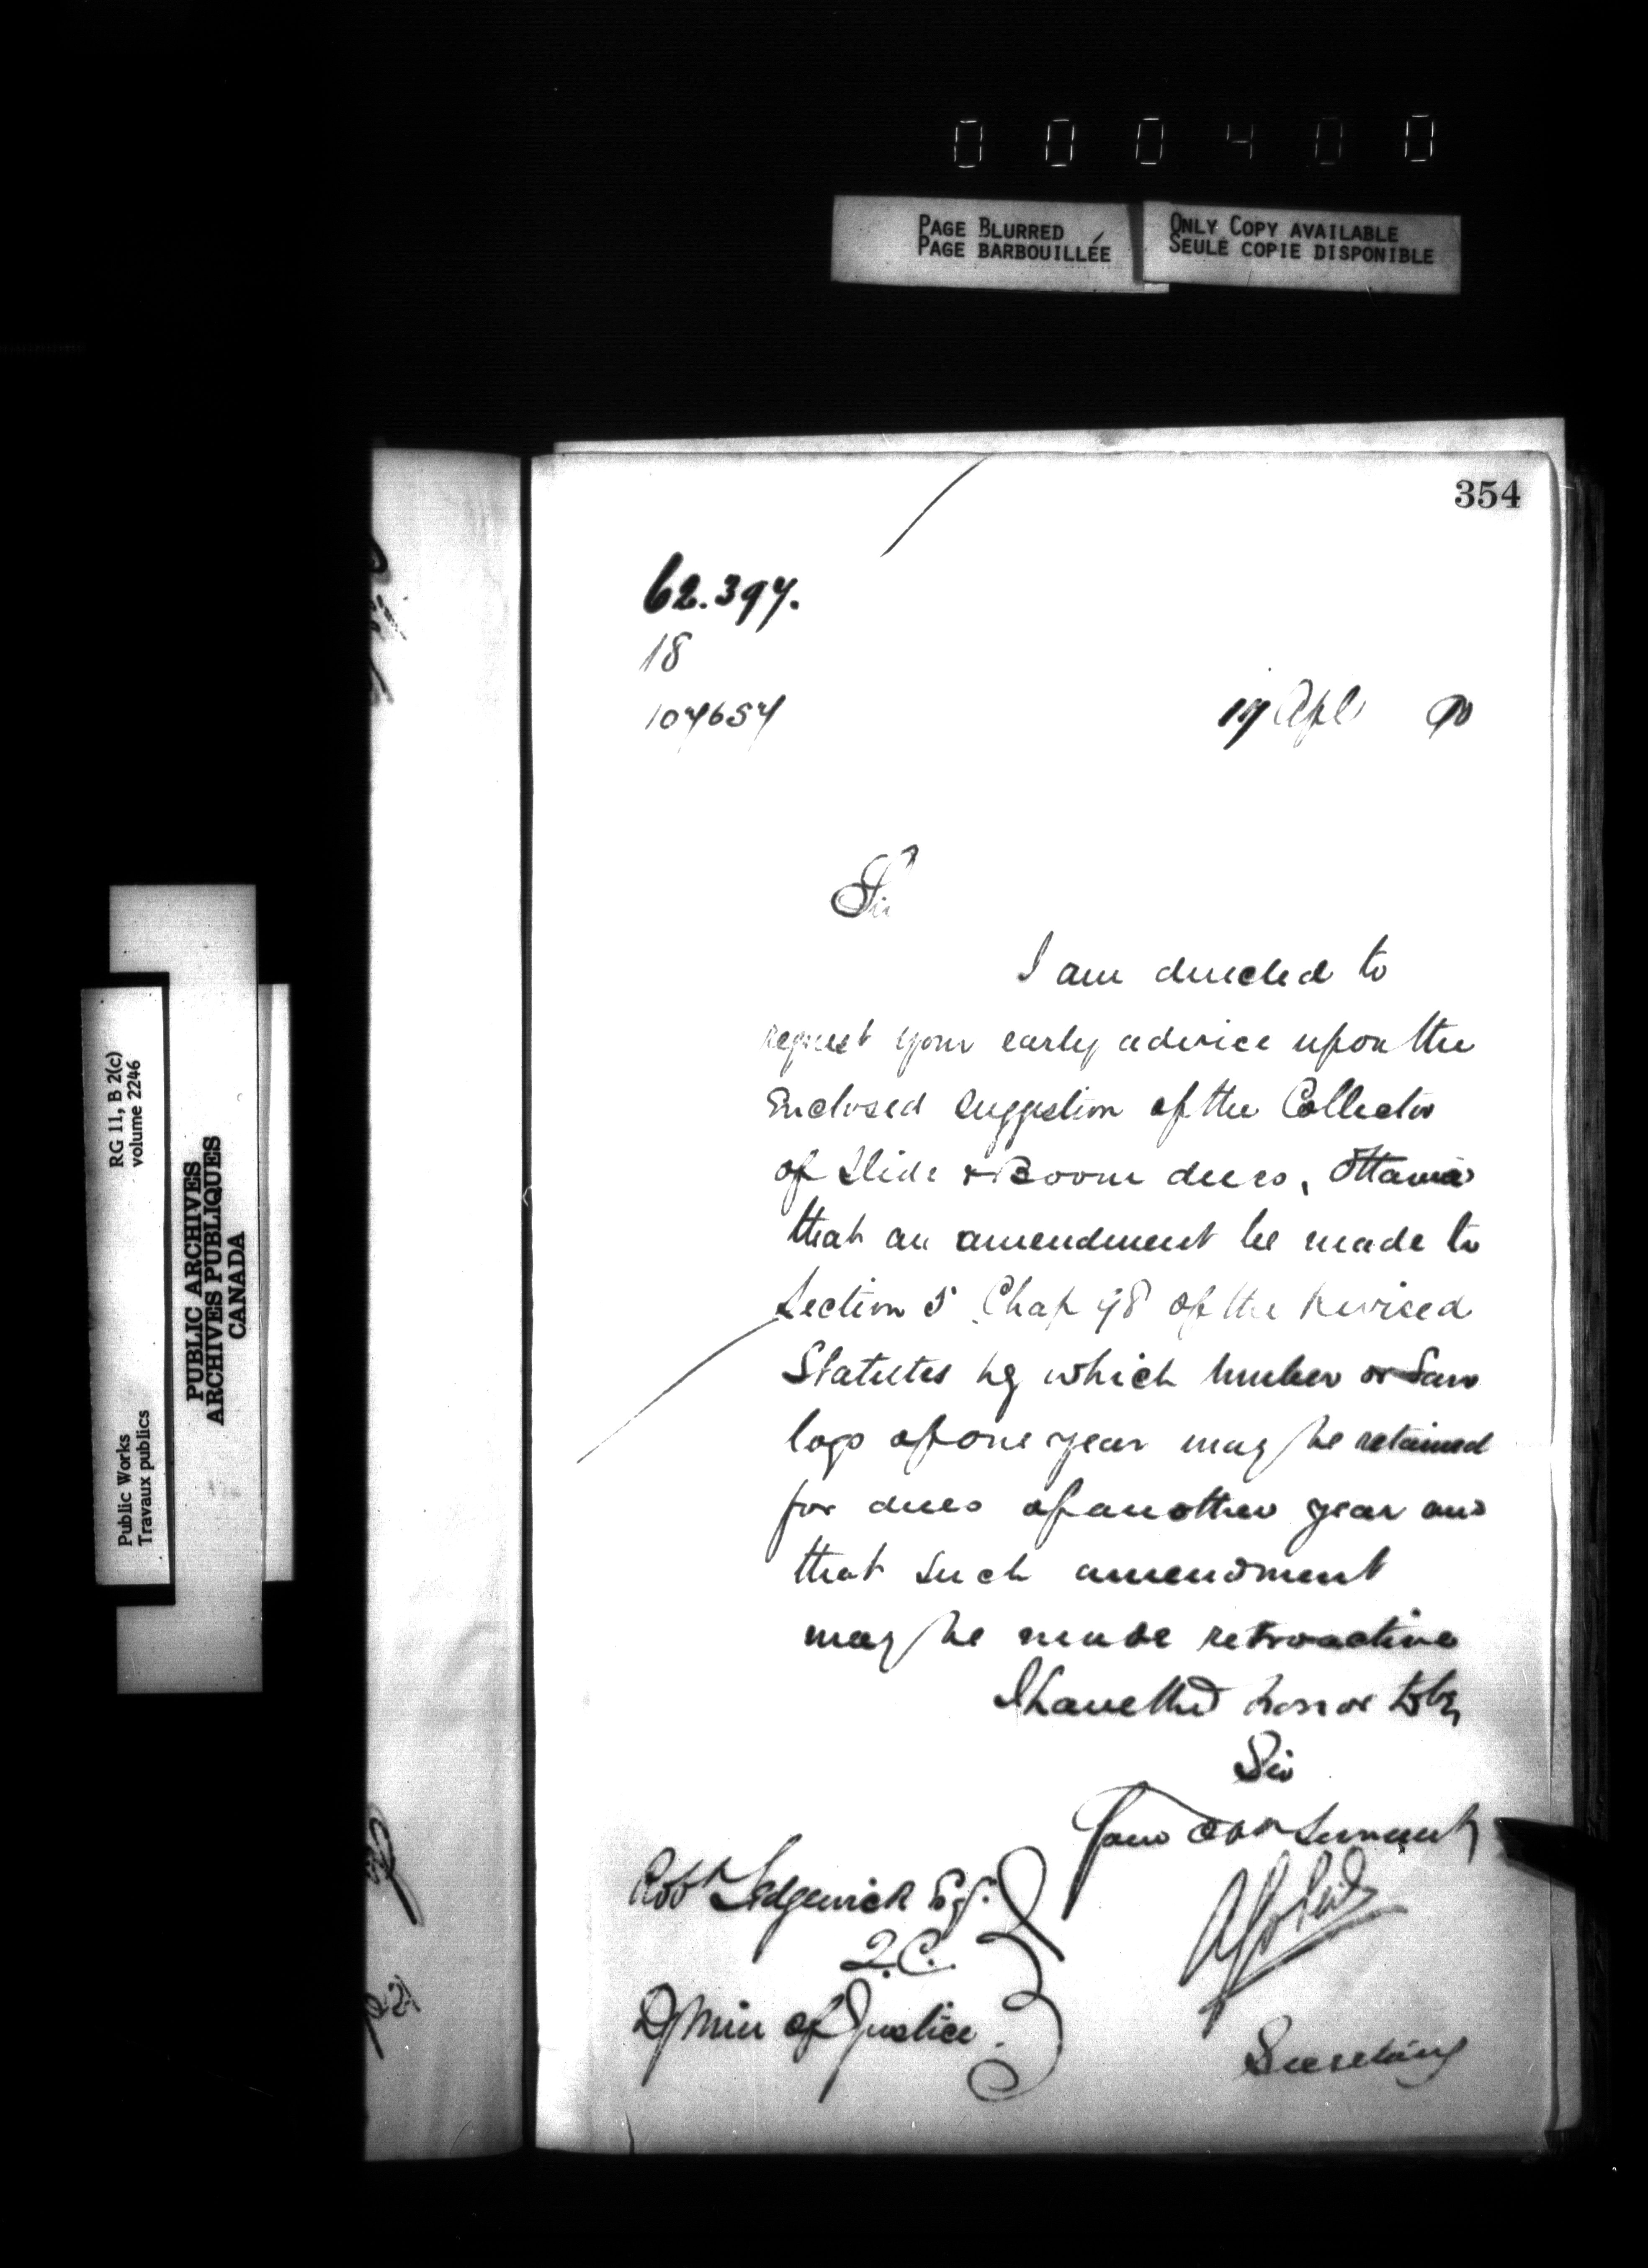 000400
PAGE BLURRED
PAGE BARBOUILLÉE
ONLY COPY AVAILABLE
SEULE COPIE DISPONIBLE
RG 11, B 2(c)
volume 2246
Public Works
Travaux publics
PUBLIC ARCHIVES
ARCHIVES PUBLIQUES
CANADA
354
62.397.
18
107657
17 Apl 90
Sir
I am directed to
request your early advice upon the
Enclosed suggestion of the Collector
of Slide & Boom dues, Ottawa
that an amendment be made to
Section 5 Chap 98 of the Revised
Statutes by which timber or Saw
logs of one year may be retained
for dues of another year and
that such amendment
may be made retroactive
I have the honor to be,
Sir
Your Obt Servant
Robt Sedgewick Esq.
Q.C.
D/ Min of Justice.
Secretary